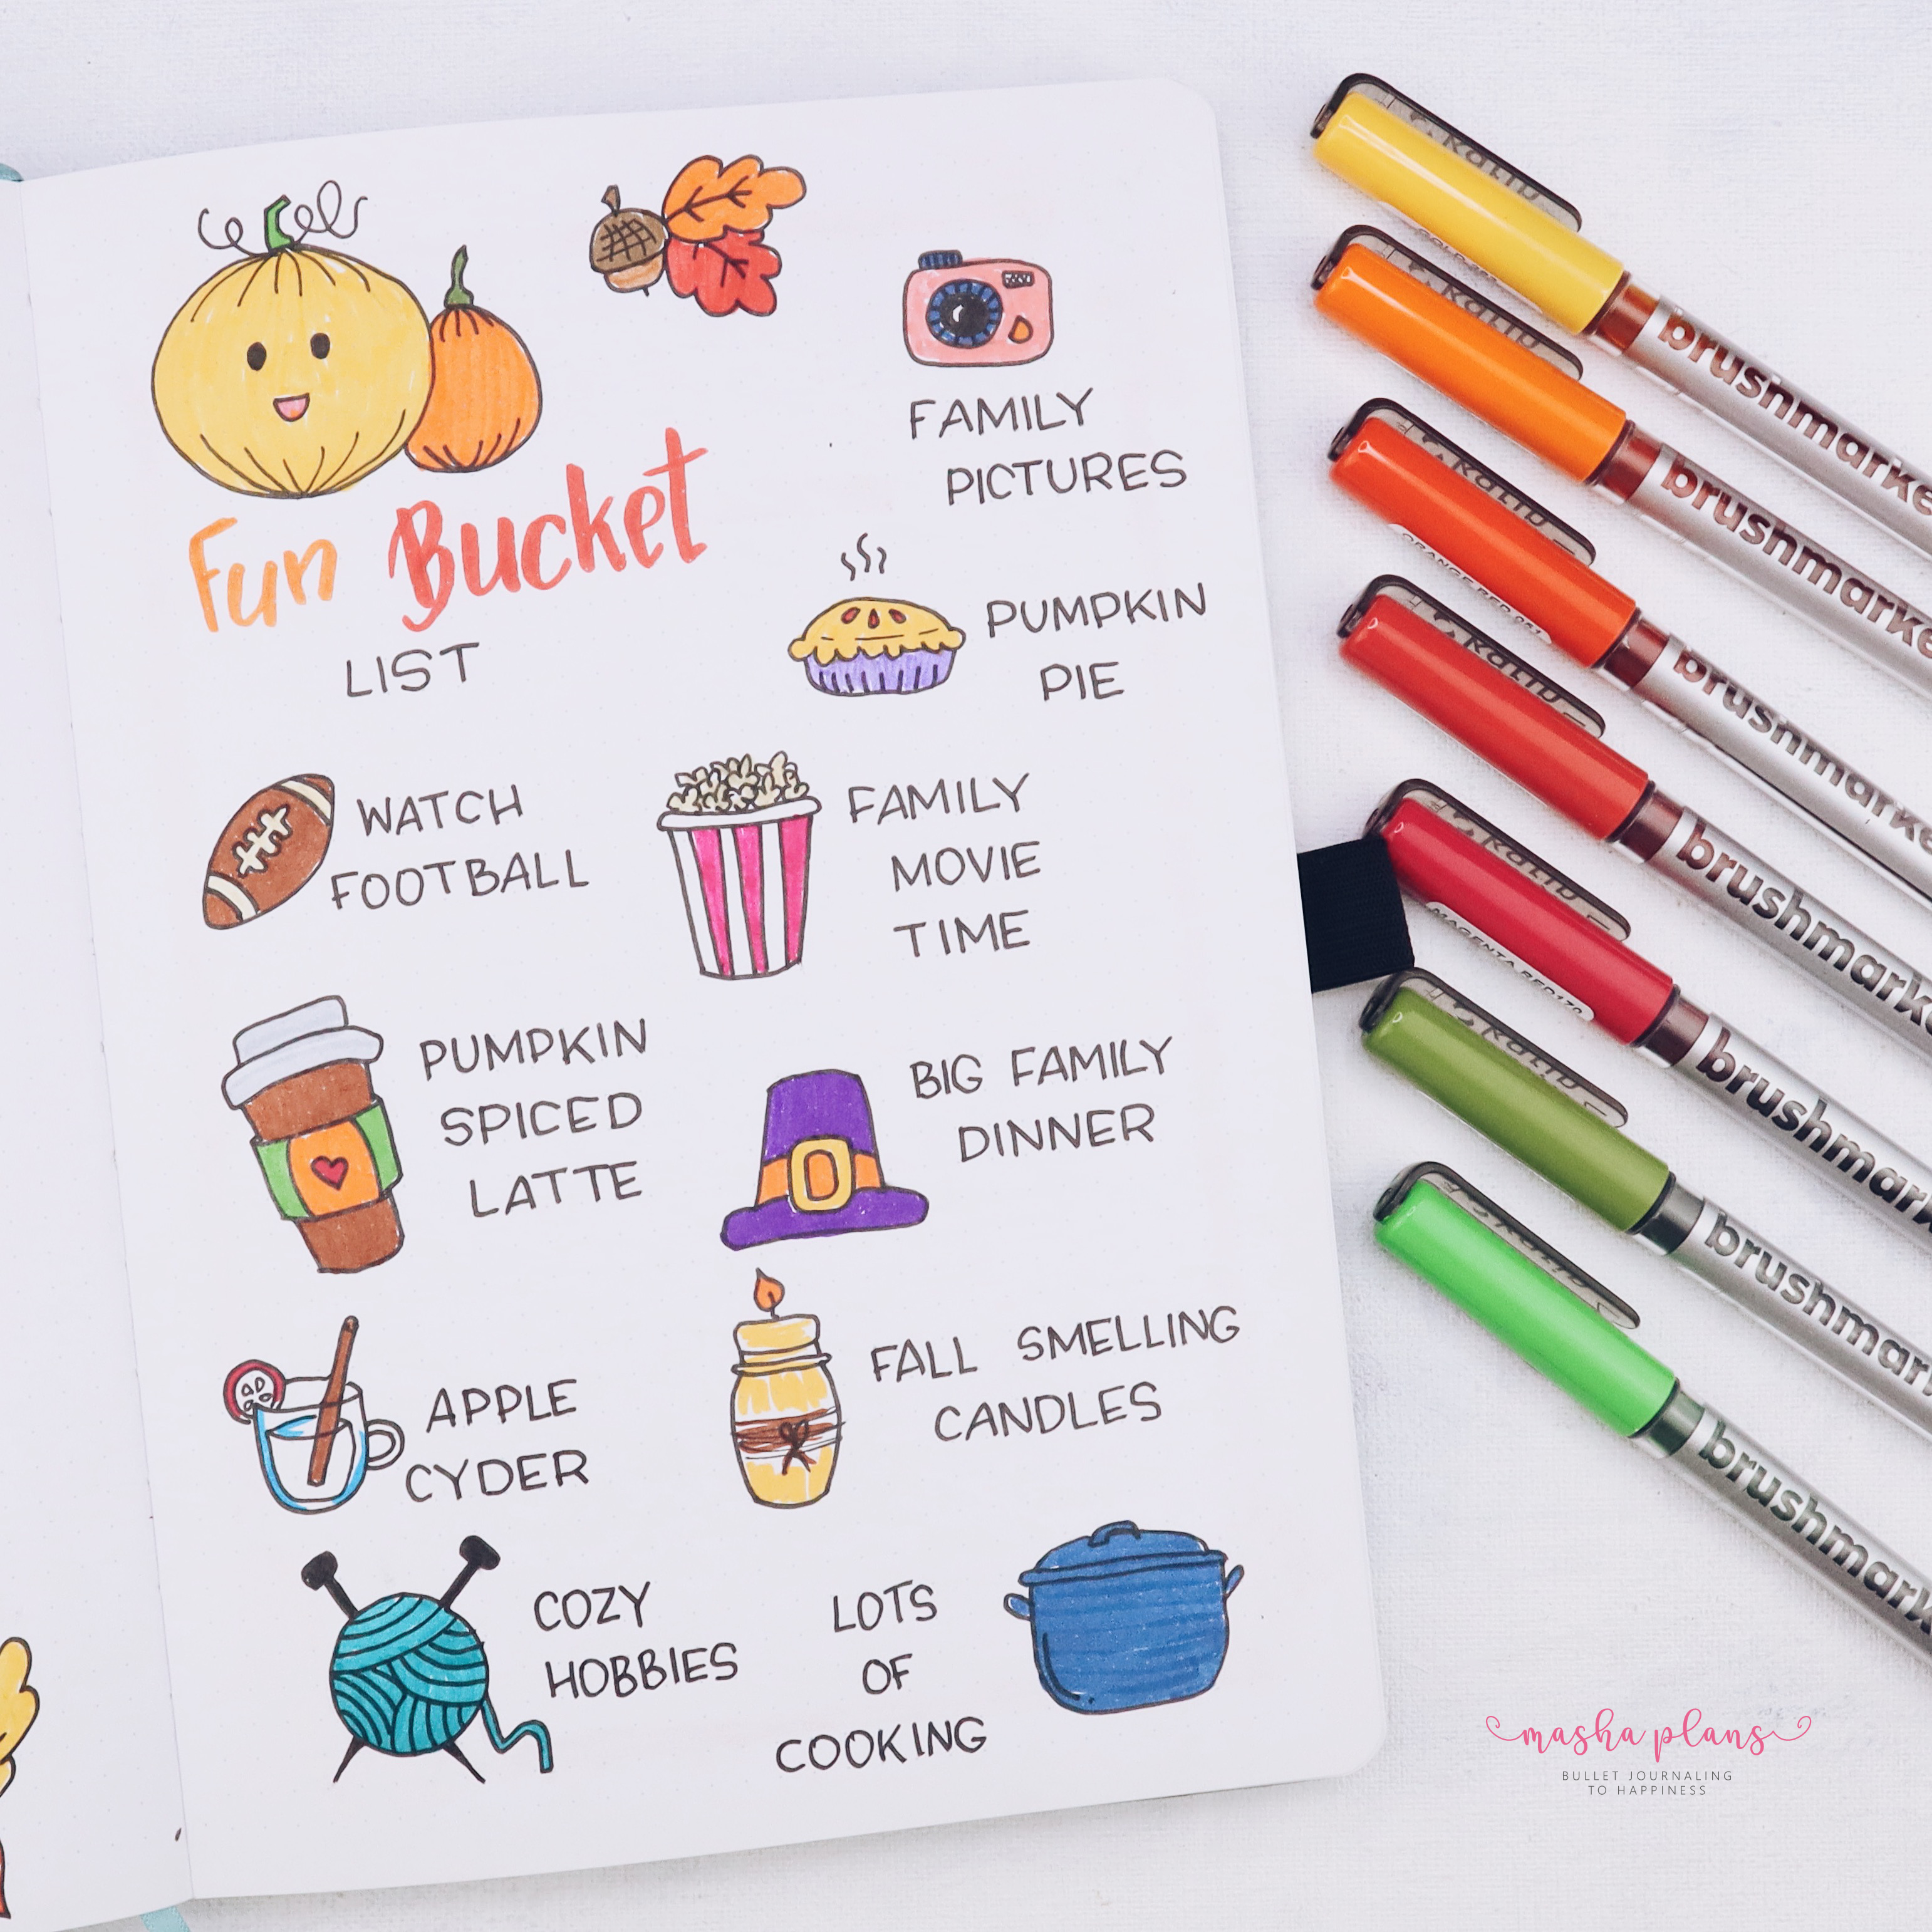 Fun Bucket
LIST
FAMILY
PICTURES
PUMPKIN
PIE
WATCH
FOOTBALL
FAMILY
MOVIE
TIME
PUMPKIN
SPICED
LATTE
BIG FAMILY
DINNER
APPLE
CYDER
FALL SMELLING
CANDLES
COZY
HOBBIES
LOTS
OF
COOKING
brushmarke
brushmarke
brushmarke
brushmarke
brushmark
brushmark
brushmark
masha plans
BULLET JOURNALING
TO HAPPINESS